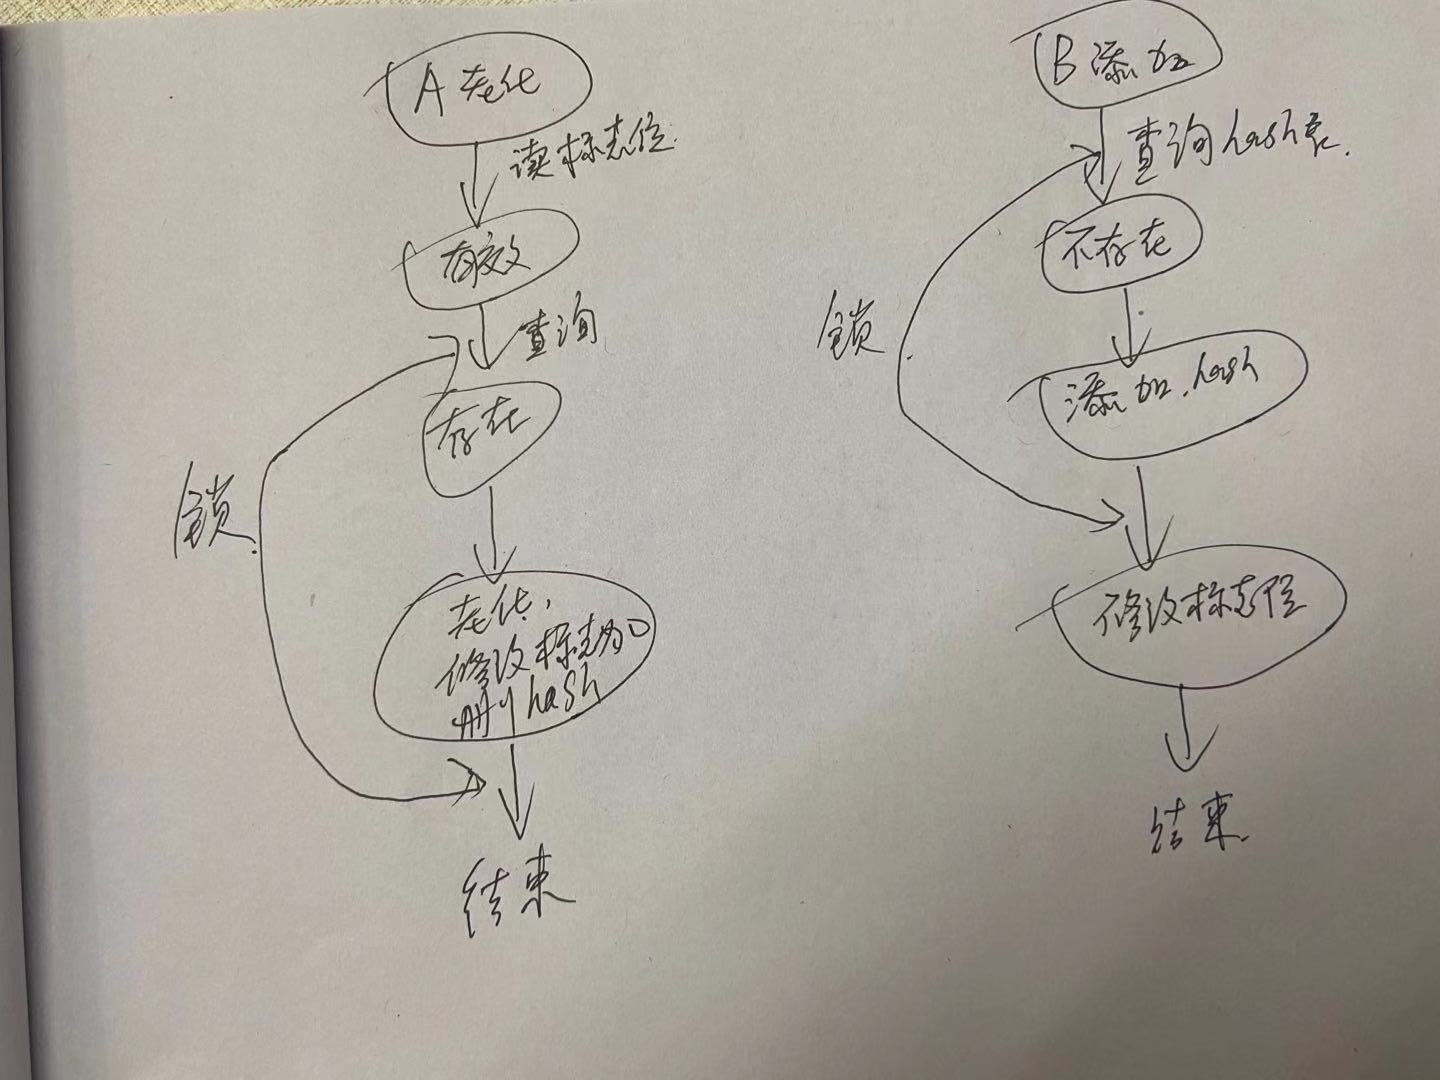 A 老化
读标志位
有效
查询
存在
锁
老化,
修改标志为0
删hash
结束
B 添加
查询hash表.
不存在
锁
添加.hash
修改标志位
结束.